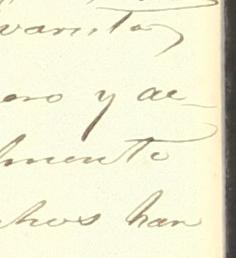 vanta,
ero y ac-
lmente
chos han